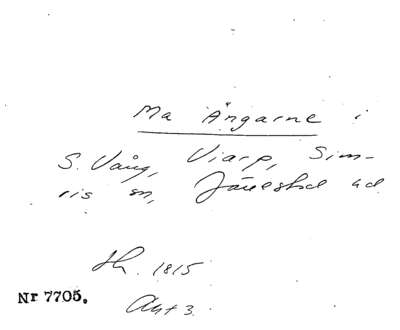 Ma Ängarne i
S. Vång, Viarp, Sim-
ris sn, Järrestad hd
Sk. 1815
Nr 7705.
Akt 3.